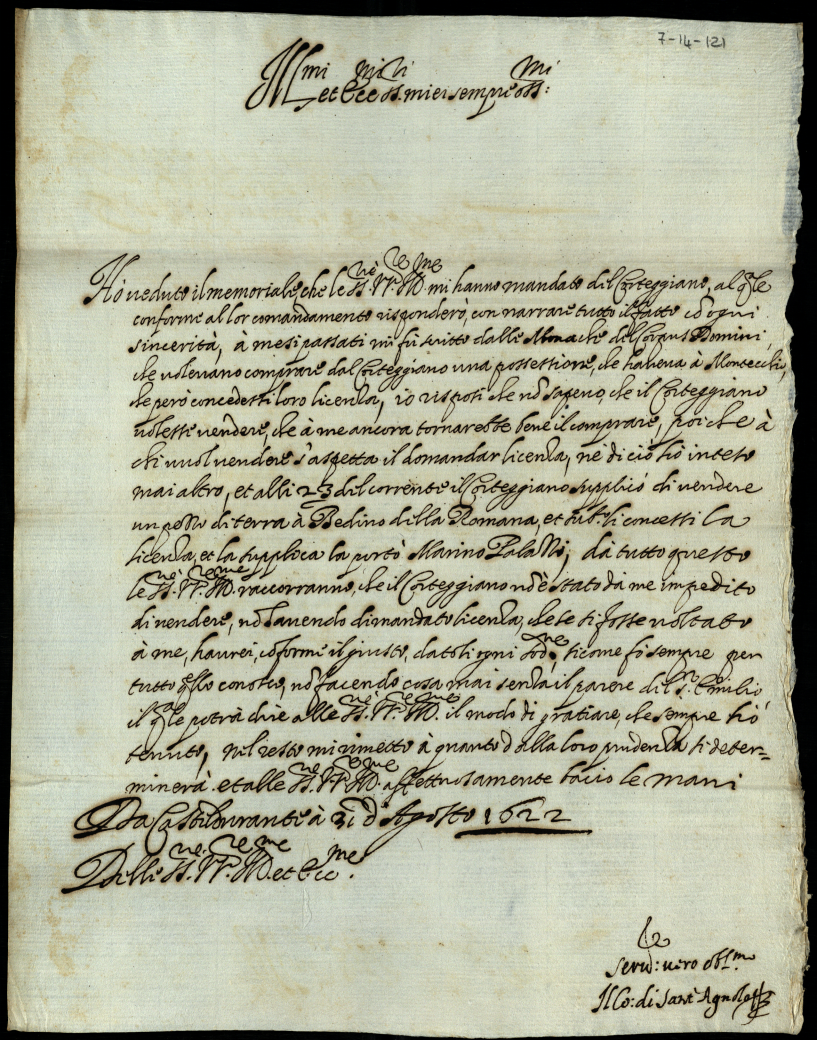 7-14-121
Ill.mi SS.ri mi
et Ecc.mi SS. miei sempre oss.
Hò veduto il memoriale, che le SS.rie VV. Ill.me mi hanno mandato del Corteggiano, al q.le
conforme al lor comandamento risponderò, con narrare tutto il fatto cō ogni
sincerità, à mesi passati mi fù scritto dalle Monache del Corpus Domini,
che volevano comprare dal Corteggiano una possessione, che haveva à Montecchio,
che però concedessi loro licenza, io risposi che nō sapevo, che il Corteggiano
volesse vendere, che à me ancora tornarebbe bene il comprare, poi che à
chi vuol vendere s'aspetta il domandar licenza, nè di ciò hò inteso
mai altro, et alli 23 del corrente il Corteggiano supplicò di vendere
un pezzo di terra à Bedino della Romana, et sub.o li concessi la
licenza, et la supplica la portò Marino Palazzi, dà tutto questo
le SS.rie VV. Ill.me raccorranno, che il Corteggiano nō è stato dà me impedito
di vendere, nō havendo dimandato licenza, che se si fosse voltato
à me, haurei, cōforme il giusto, datoli ogni sod.ne, sicome fò sempre per
tutto q.llo conosco, nō facendo cosa mai senza il parere del S.r Emilio,
il q.le potrà dire alle SS.rie VV. Ill.me il modo di gratiare, che sempre hò
tenuto, nel resto mi rimetto à quanto dalla loro prudenza si deter=
minerà et alle SS.rie VV. Ill.me affettuosamente bacio le mani
Da Castel durante à 31 d'Agosto 1622
Delle SS.rie VV. Ill.me et Ecc.me
Ser.re vero obl.mo
Il Co: di Sant'Agnolo